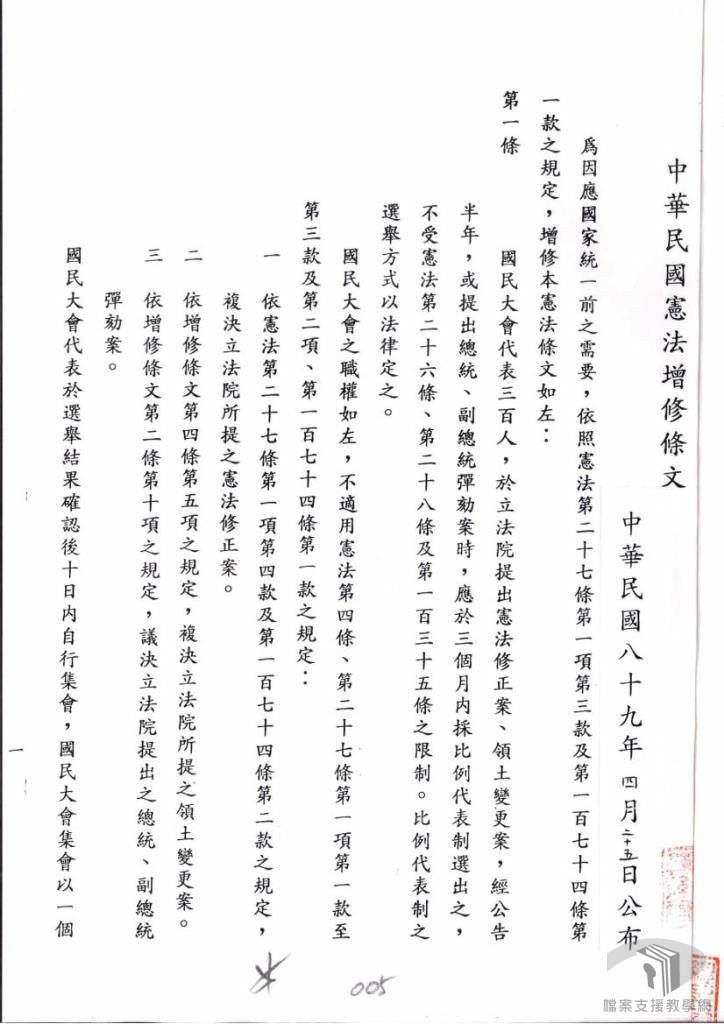 中華民國憲法增修條文
中華民國八十九年四月二十五日公布
爲因應國家統一前之需要，依照憲法第二十七條第一項第三款及第一百七十四條第
一款之規定，增修本憲法條文如左：
第一條
國民大會代表三百人，於立法院提出憲法修正案、領土變更案，經公告
半年，或提出總統、副總統彈劾案時，應於三個月內採比例代表制選出之，
不受憲法第二十六條、第二十八條及第一百三十五條之限制。比例代表制之
選舉方式以法律定之。
國民大會之職權如左，不適用憲法第四條、第二十七條第一項第一款至
第三款及第二項、第一百七十四條第一款之規定：
一　依憲法第二十七條第一項第四款及第一百七十四條第二款之規定，
複決立法院所提之憲法修正案。
二　依增修條文第四條第五項之規定，複決立法院所提之領土變更案。
三　依增修條文第二條第十項之規定，議決立法院提出之總統、副總統
彈劾案。
國民大會代表於選舉結果確認後十日內自行集會，國民大會集會以一個
一
005
檔案支援教學網